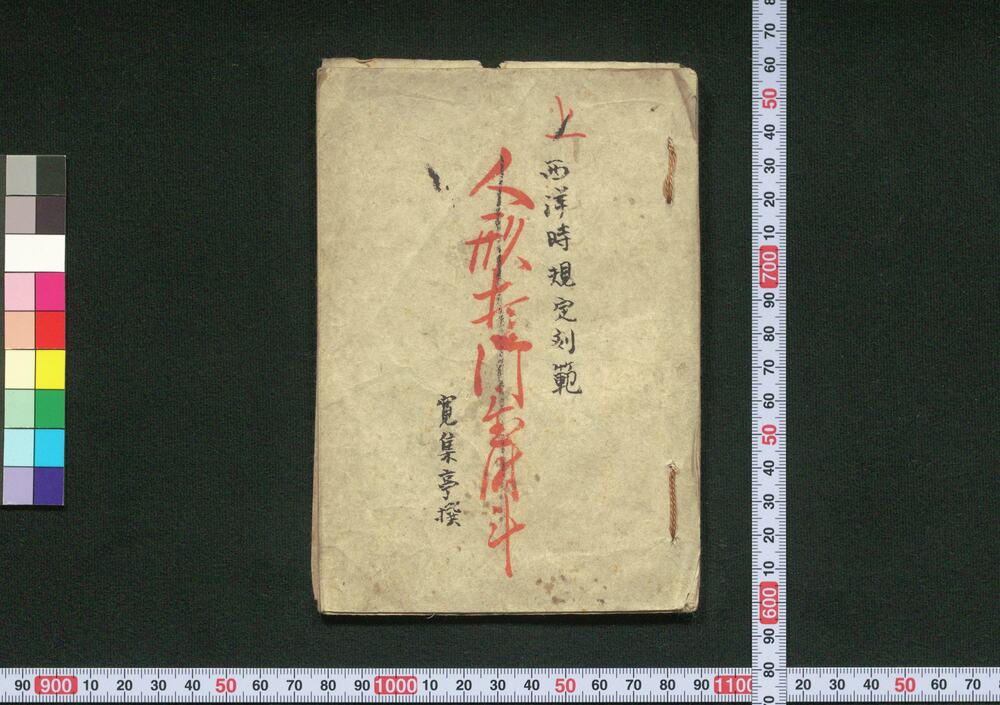 上
西洋時規定刻範
人形
寛集亭撰
90 900 10 20 30 40 50 60 70 80 90 1000 10 20 30 40 50 60 70 80 90 1100 20 30 40 50 60 70
70 60 50 40 30 20 10 700 90 80 70 60 50 40 30 20 10 600 90 80 70